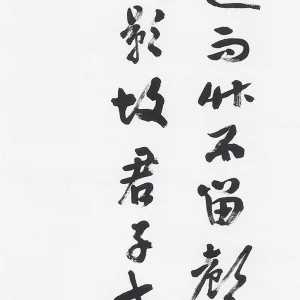 而竹不留聲
影故君子